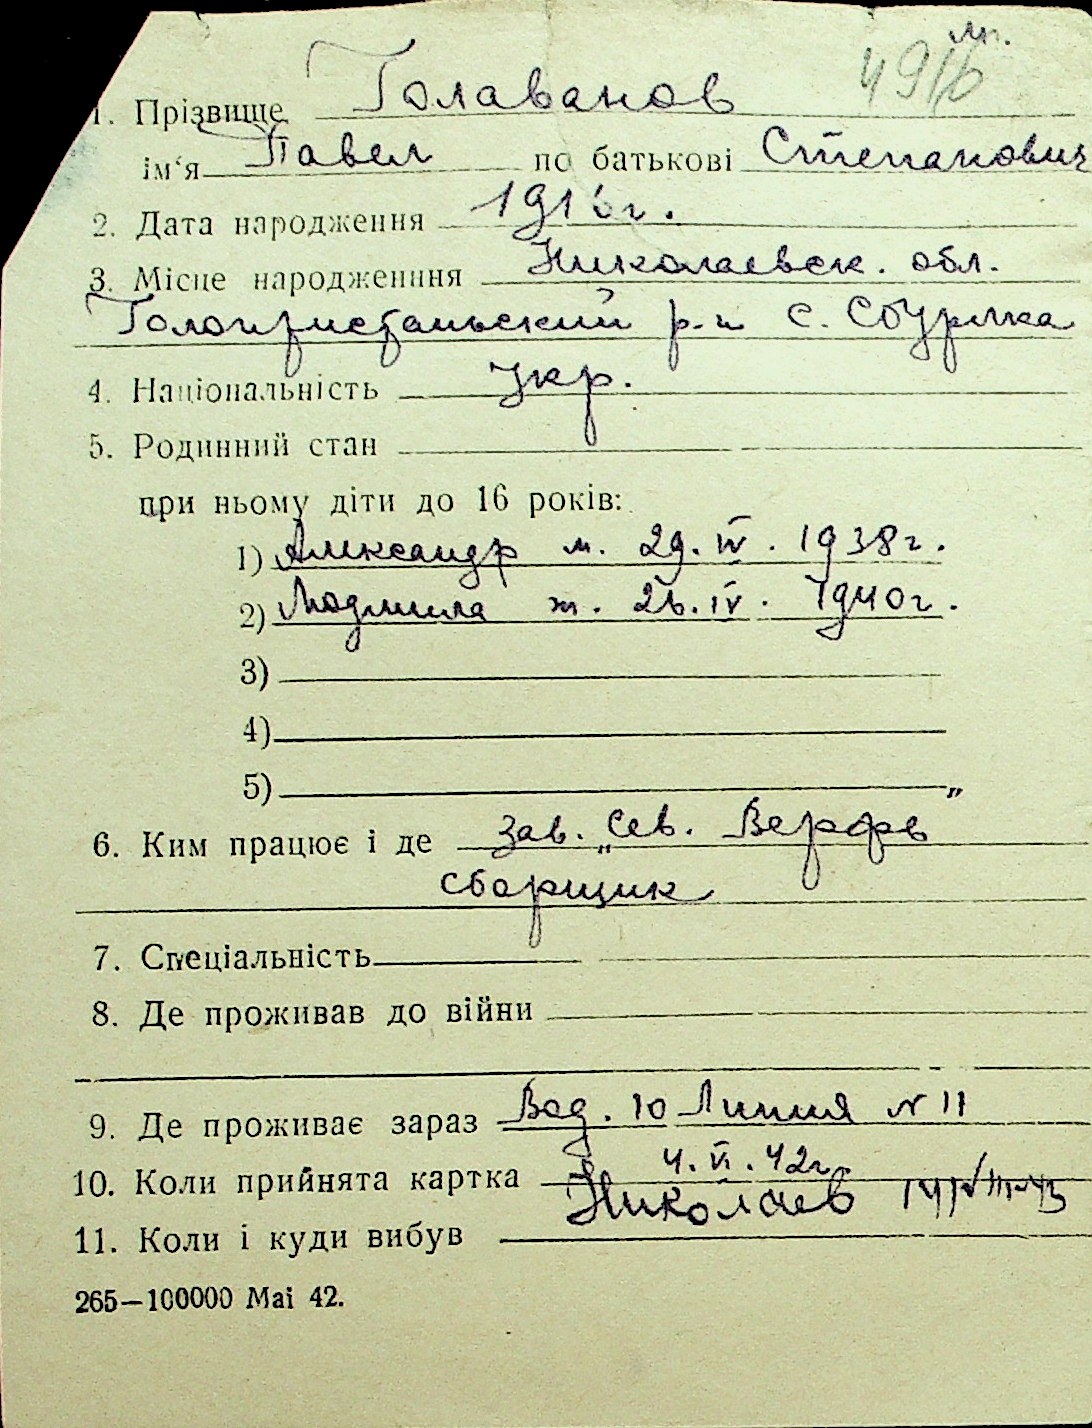 4916
1. Прізвище Голаванов
ім‘я Павел по батькові Степанович
2. Дата народження 1916 г.
3. Місце народженння Николаевск. обл.
Голопристаньский р-н с. Збурьевка
4. Національність Укр.
5. Родинний стан
при ньому діти до 16 років:
1) Александр м. 29. IV. 1938 г.
2) Людмила ж. 26. IV. 1940 г.
3)
4)
5)
6. Ким працює і де зав. „Сев. Верфь"
сборщик
7. Спеціальність
8. Де проживав до війни
9. Де проживає зараз Вод. 10 Линия N 11
10. Коли прийнята картка 4. VI. 42 г.
11. Коли і куди вибув Николаев
265—100000 Mai 42.